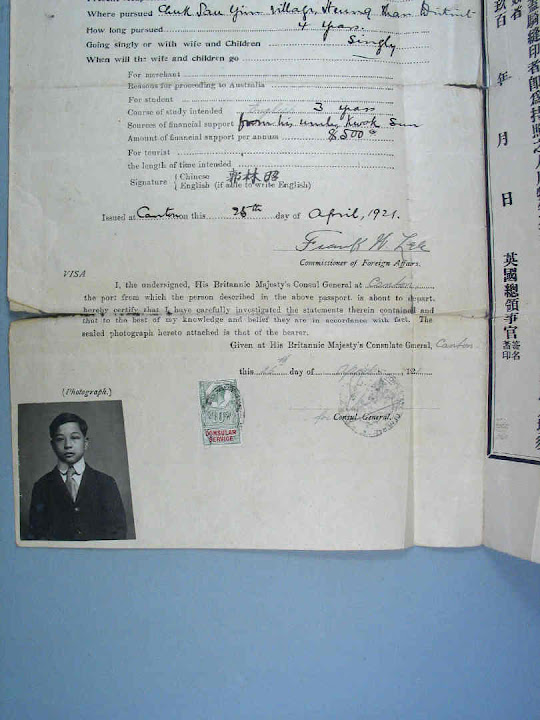 Where pursued Chuk Sau Yuen Village, Heung Shan District
How long pursued 4 years.
Going singly or with wife and Children Singly
When will the wife and children go
For merchant
Reasons for proceeding to Australia
For student
Course of study intended English 3 years
Sources of financial support from his uncle, Kwok Sun
Amount of financial support per annum $500
For tourist
the length of time intended
Signature { Chinese 郭林昭
English (if able to write English)
Issued at Canton on this 25th day of April, 1921.
Frank W Lee
Commissioner of Foreign Affairs.
VISA
I, the undersigned, His Britannic Majesty's Consul General at Canton
the port from which the person described in the above passport is about to depart,
hereby certify that I have carefully investigated the statements therein contained and
that to the best of my knowledge and belief they are in accordance with fact. The
sealed photograph hereto attached is that of the bearer.
Given at His Britannic Majesty's Consulate General, Canton
this day of 192
for Consul General.
(Photograph.)
CONSULAR
SERVICE
玖百 年 月 日
英國總領事官 簽名 蓋印